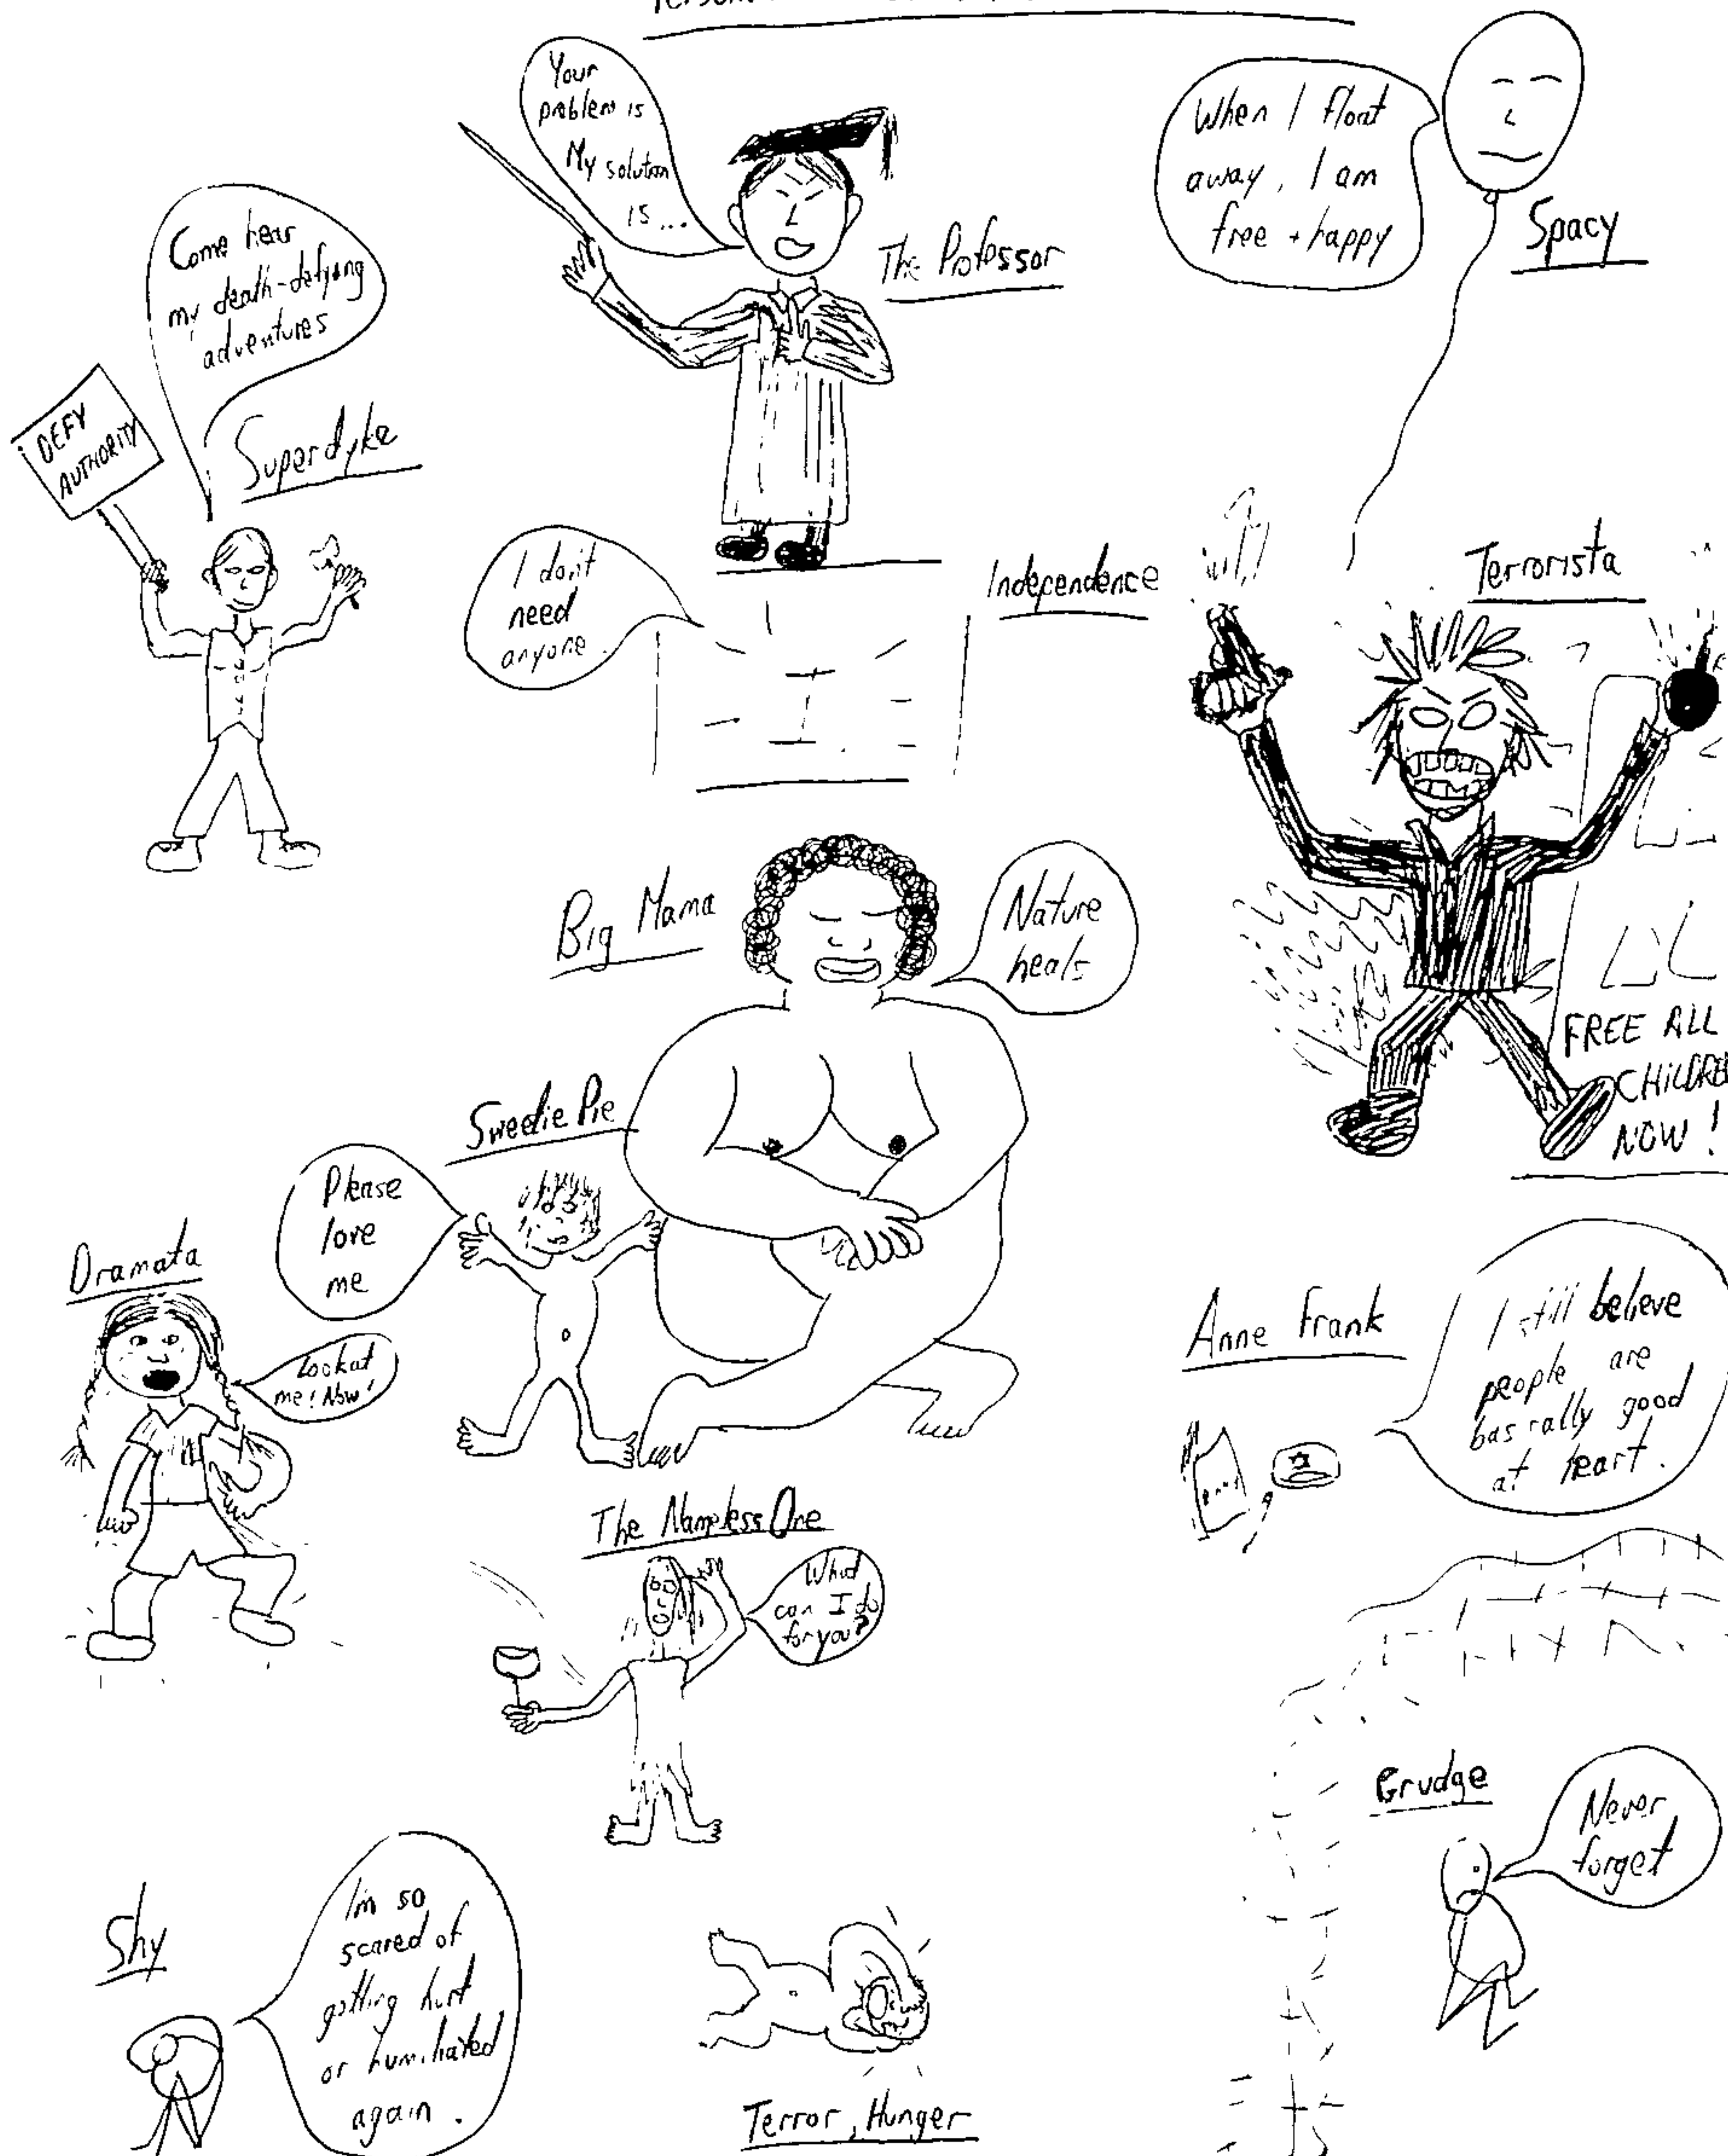 Your
problem is
My solution
is...
The Professor
When I float
away, I am
free + happy
Spacy
Come hear
my death-defying
adventures
i DEFY
AUTHORITY
Superdyke
I don't
need
anyone.
Independence
I
Terrorista
FREE ALL
NOW!
Big Mama
Nature
heals
Sweetie Pie
Please
love
me
Dramata
Look at
me! Now!
Anne Frank
I still believe
people are
good
at heart.
The Nameless One
What
can I do
for you?
Grudge
Never
forget
Shy
I'm so
scared of
getting hurt
or humiliated
again.
Terror, Hunger